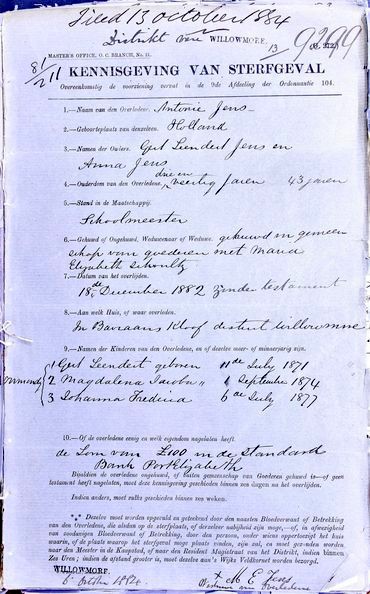 Filed 13 October 1884
Distrikt van WILLOWMORE.
13 9299
MASTER'S OFFICE, O. C. BRANCH, No. 11.
8/2 11 KENNISGEVING VAN STERFGEVAL
Overeenkomstig de voorziening vervat in de 9de Afdeeling der Ordonnantie 104.
1.—Naam van den Overledene. Antonie Jens
2.—Geboorteplaats van denzelven. Holland
3.—Namen der Ouders. Gert Leendert Jens en
Anna Jens
4.—Ouderdom van den Overledene, drie en veertig Jaren 43 jaren
5.—Stand in de Maatschappij.
Schoolmeester
6.—Gehuwd of Ongehuwd, Weduwenaar of Weduwe. gehuwd in gemeen
schap van goederen met Maria
Elizabeth Schoultz
7.—Datum van het overlijden.
18de December 1882 zonder testament
8.—Aan welk Huis, of waar overleden.
In Baviaans Kloof district Willowmore
9.—Namen der Kinderen van den Overledene, en of dezelve meer- of minnerjarig zijn.
1 Gert Leendert geboren 11de July 1871
2 Magdalena Jacoba " 1 September 1874
3 Johanna Fredrica 6de July 1877
10.—Of de overledene eenig en welk eigendom nagelaten heeft.
de Som van £100 in de Standard
Bank Port Elizabeth
Bijaldien de overledene ongehuwd, of buiten gemeenschap van Goederen gehuwd is—of geen
testament heeft nagelaten, moet deze kennisgeving geschieden binnen zes dagen na het overlijden.
Indien anders, moet zulks geschieden binnen zes weken.
Dezelve moet worden opgevuld en geteekend door den naasten Bloedverwant of Betrekking
van den Overledene, die alsdan op de sterfplaats, of derzelver nabijheid zijn moge,—of, in afwezigheid
van zoodanigen Bloedverwant of Betrekking, door den persoon, onder wiens oppertoezigt het huis
waarin, of de plaats waarop het sterfgeval moge plaats vinden, zijn zal, en moet gezonden worden
aan den Meester in de Kaapstad, of aan den Resident Magistraat van het Distrikt, indien binnen
Zes Uren; indien de afstand grooter is, moet dezelve aan 's Wijks Veldkornet worden bezorgd.
WILLOWMORE.
6 October 1884
M E Jens
Weduwe van Overledene